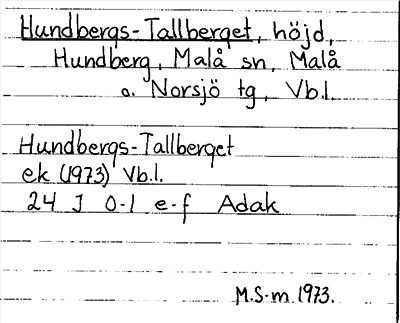 Hundbergs-Tallberget, höjd,
Hundberg, Malå sn, Malå
o. Norsjö tg, Vb.l.
Hundbergs-Tallberget
ek (1973) Vb.l.
24 J 0-1 e-f Adak
M.S-m. 1973.